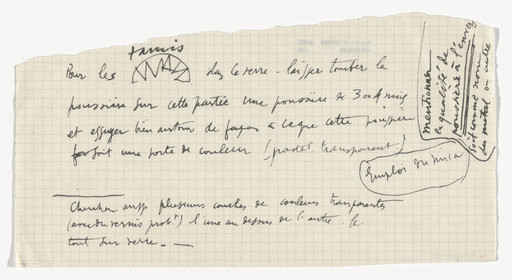 tamis
Pour les dans le verre - laisser tomber la
poussière sur cette partie une poussière de 3 ou 4 mois
et essuyer bien autour de façon à ce que cette poussière
soit une sorte de couleur (pastel transparent)
mentionner
la qualité de
poussière à l'envers
soit comme nom
du métal ou autre
Emploi du mica
Chercher aussi plusieurs couches de couleurs transparentes
(avec du vernis probt) l'une au dessus de l'autre. le
tout sur verre. —